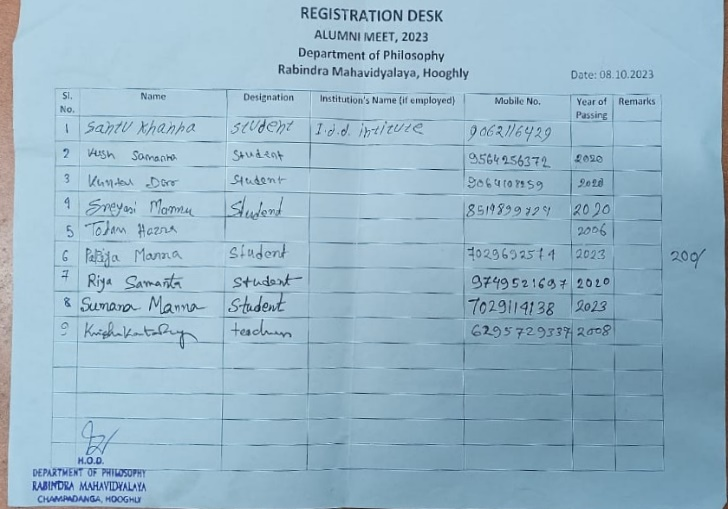 REGISTRATION DESK
ALUMNI MEET, 2023
Department of Philosophy
Rabindra Mahavidyalaya, Hooghly
Date: 08.10.2023
Sl. No. Name Designation Institution's Name (if employed) Mobile No. Year of Passing Remarks
1 Santu Khanna student I.d.d. intitute 9062116429
2 Kush Samanta Student 9564256372 2020
3 Student
4 Sreyasi Manna Student 2020
5 Hazra 2006
6 Manna Student 7029692514 2023 200/
7 Riya Samanta Student 9749521697 2020
8 Sumana Manna Student 7029114138 2023
9 teacher 6295729337 2008
H.O.D.
DEPARTMENT OF PHILOSOPHY
RABINDRA MAHAVIDYALAYA
CHAMPADANGA, HOOGHLY